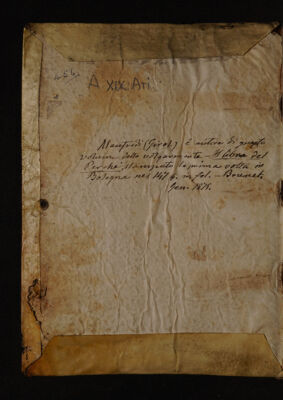 A XIX. Ati.
Manfredi (Girol.) è autore di questo
volume detto volgarmente - Il Libro del
Perchè, stampato la prima volta in
Bologna nel 1474. in fol. - Brunet.
Gen. 1871.